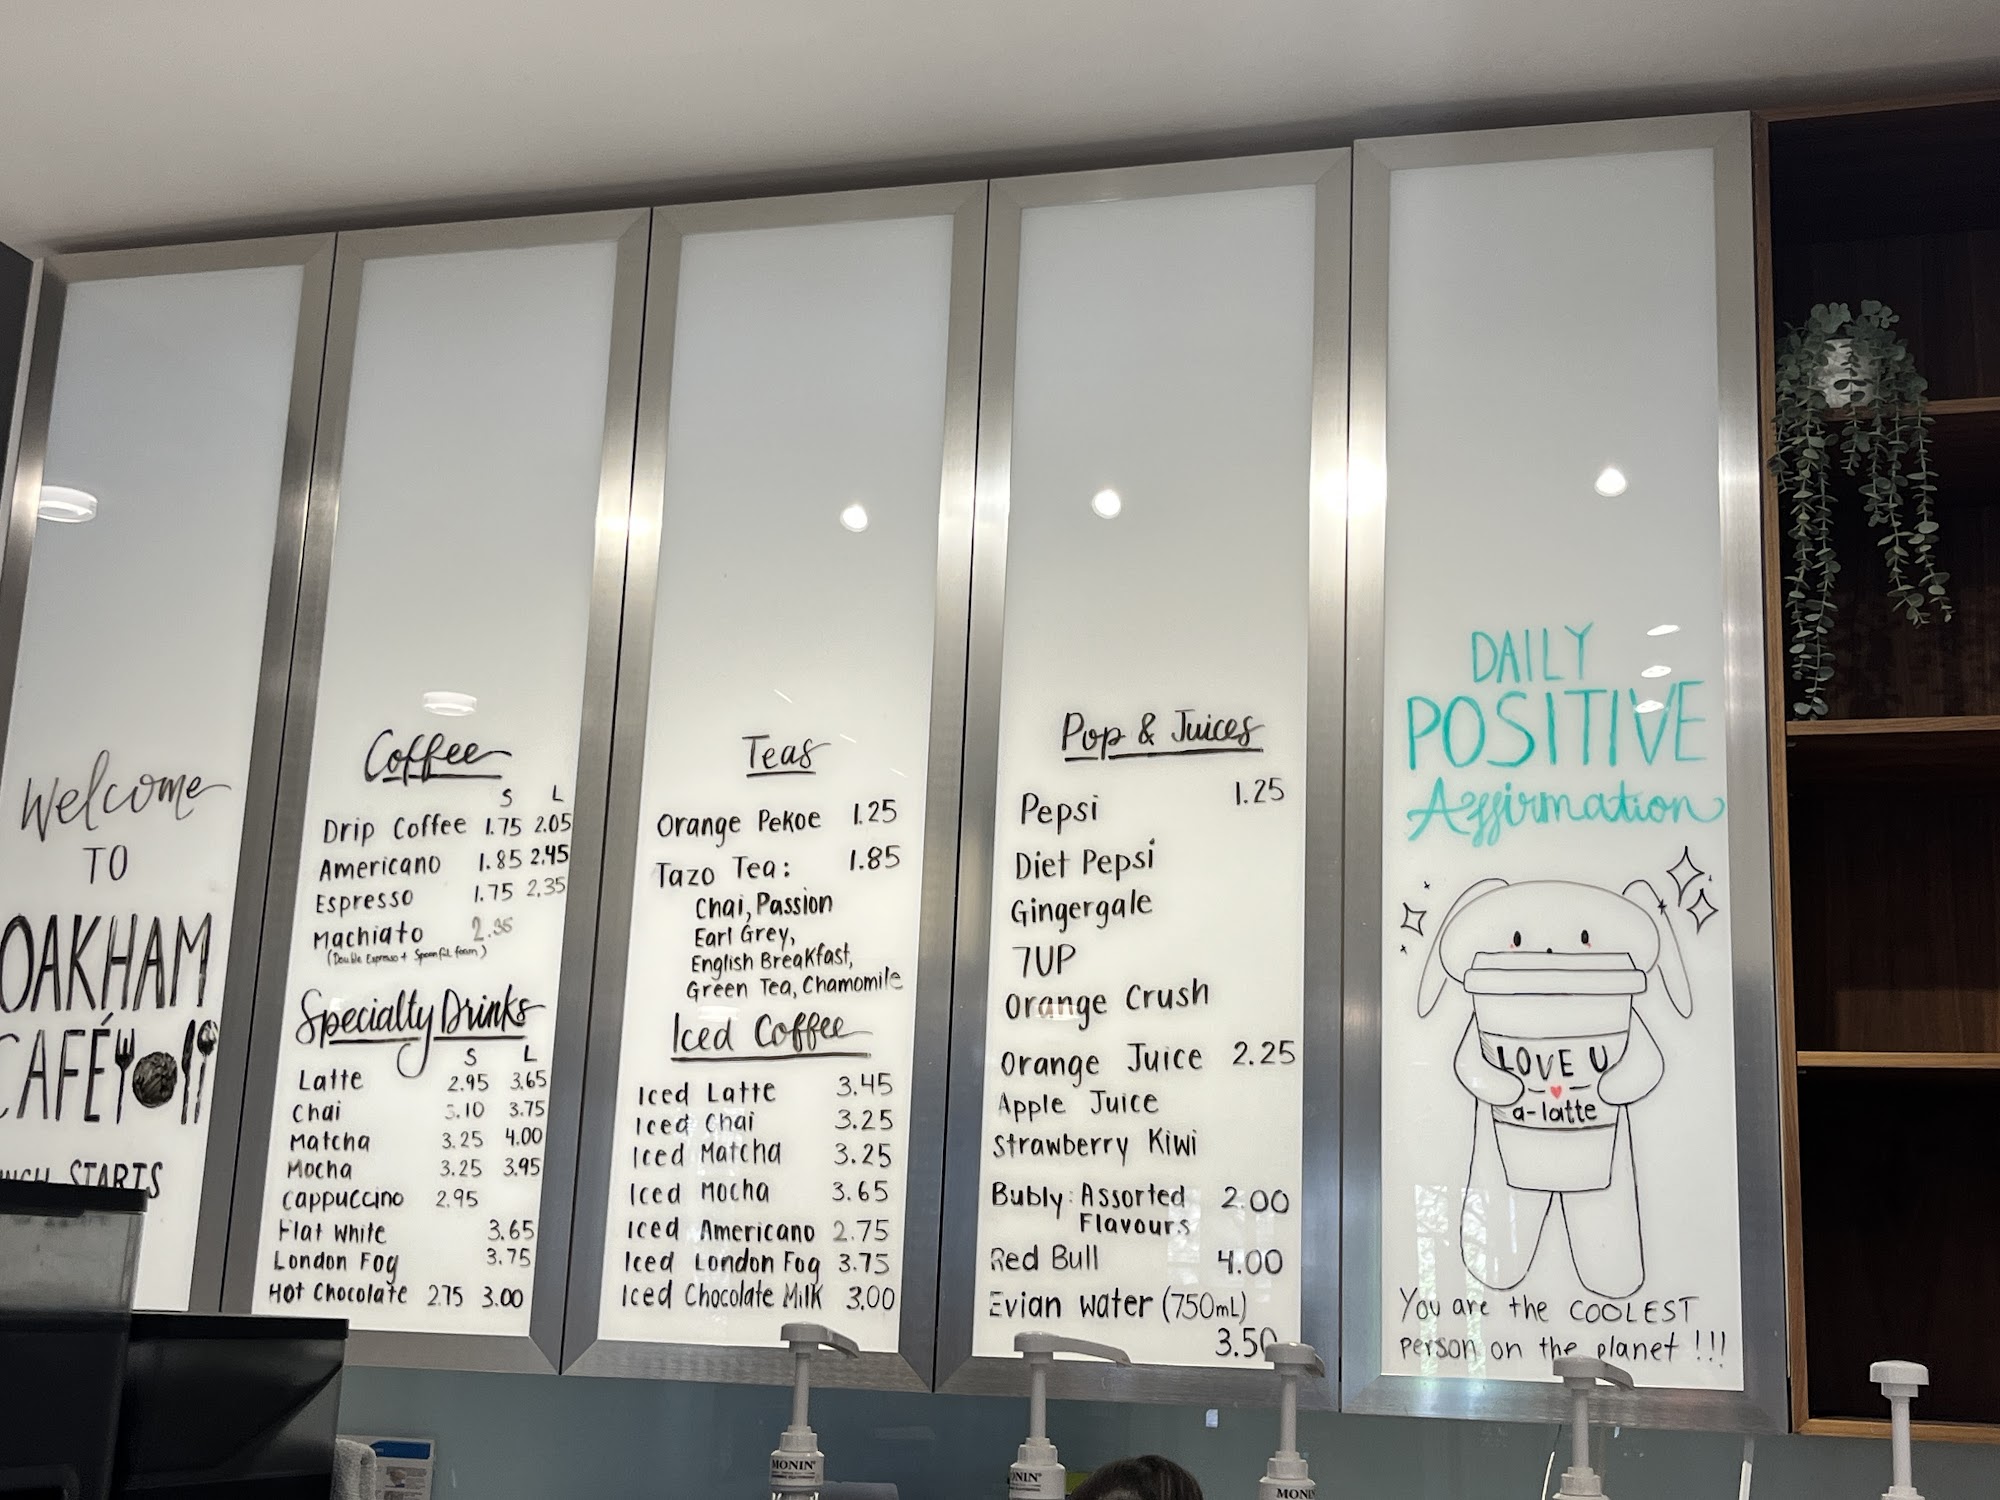 Welcome
TO
OAKHAM
CAFÉ
STARTS
Coffee
S L
Drip Coffee 1.75 2.05
Americano 1.85 2.45
Espresso 1.75 2.35
Machiato 2.35
(Double Espresso + Spoonful foam)
Specialty Drinks
S L
Latte 2.95 3.65
Chai 3.10 3.75
Matcha 3.25 4.00
Mocha 3.25 3.95
Cappuccino 2.95
Flat White 3.65
London Fog 3.75
Hot Chocolate 2.75 3.00
Teas
Orange Pekoe 1.25
Tazo Tea: 1.85
Chai, Passion
Earl Grey,
English Breakfast,
Green Tea, Chamomile
Iced Coffee
Iced Latte 3.45
Iced Chai 3.25
Iced Matcha 3.25
Iced Mocha 3.65
Iced Americano 2.75
Iced London Fog 3.75
Iced Chocolate Milk 3.00
Pop & Juices
Pepsi 1.25
Diet Pepsi
Gingergale
7UP
Orange Crush
Orange Juice 2.25
Apple Juice
Strawberry Kiwi
Bubly: Assorted 2.00
Flavours
Red Bull 4.00
Evian water (750mL)
3.50
DAILY
POSITIVE
Affirmation
LOVE U
a-latte
You are the COOLEST
person on the planet !!!
MONIN
MONIN
MONIN